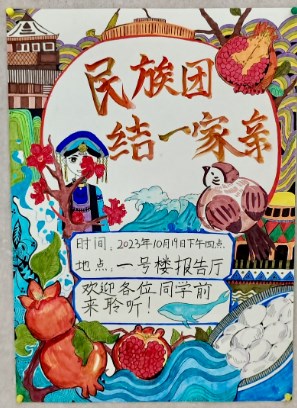 民族团
结一家亲
时间：2023年10月19日下午四点
地点：一号楼报告厅
欢迎各位同学前
来聆听！